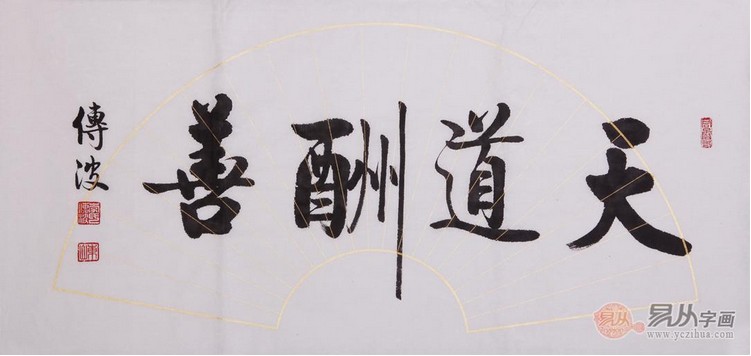 天道酬善
傳波
易从字画
www.yczihua.com